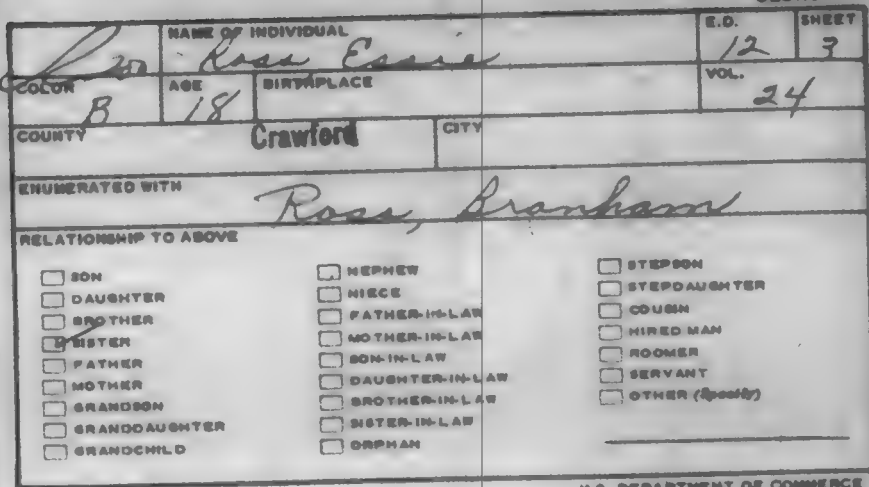 NAME OF INDIVIDUAL E.D. SHEET
Ross Essie 12 3
COLOR AGE BIRTHPLACE VOL.
B 18 24
COUNTY Crawford CITY
ENUMERATED WITH
Ross, Branham
RELATIONSHIP TO ABOVE
SON
DAUGHTER
BROTHER
SISTER
FATHER
MOTHER
GRANDSON
GRANDDAUGHTER
GRANDCHILD
NEPHEW
NIECE
FATHER-IN-LAW
MOTHER-IN-LAW
SON-IN-LAW
DAUGHTER-IN-LAW
BROTHER-IN-LAW
SISTER-IN-LAW
ORPHAN
STEPSON
STEPDAUGHTER
COUSIN
HIRED MAN
ROOMER
SERVANT
OTHER (Specify)
U.S. DEPARTMENT OF COMMERCE